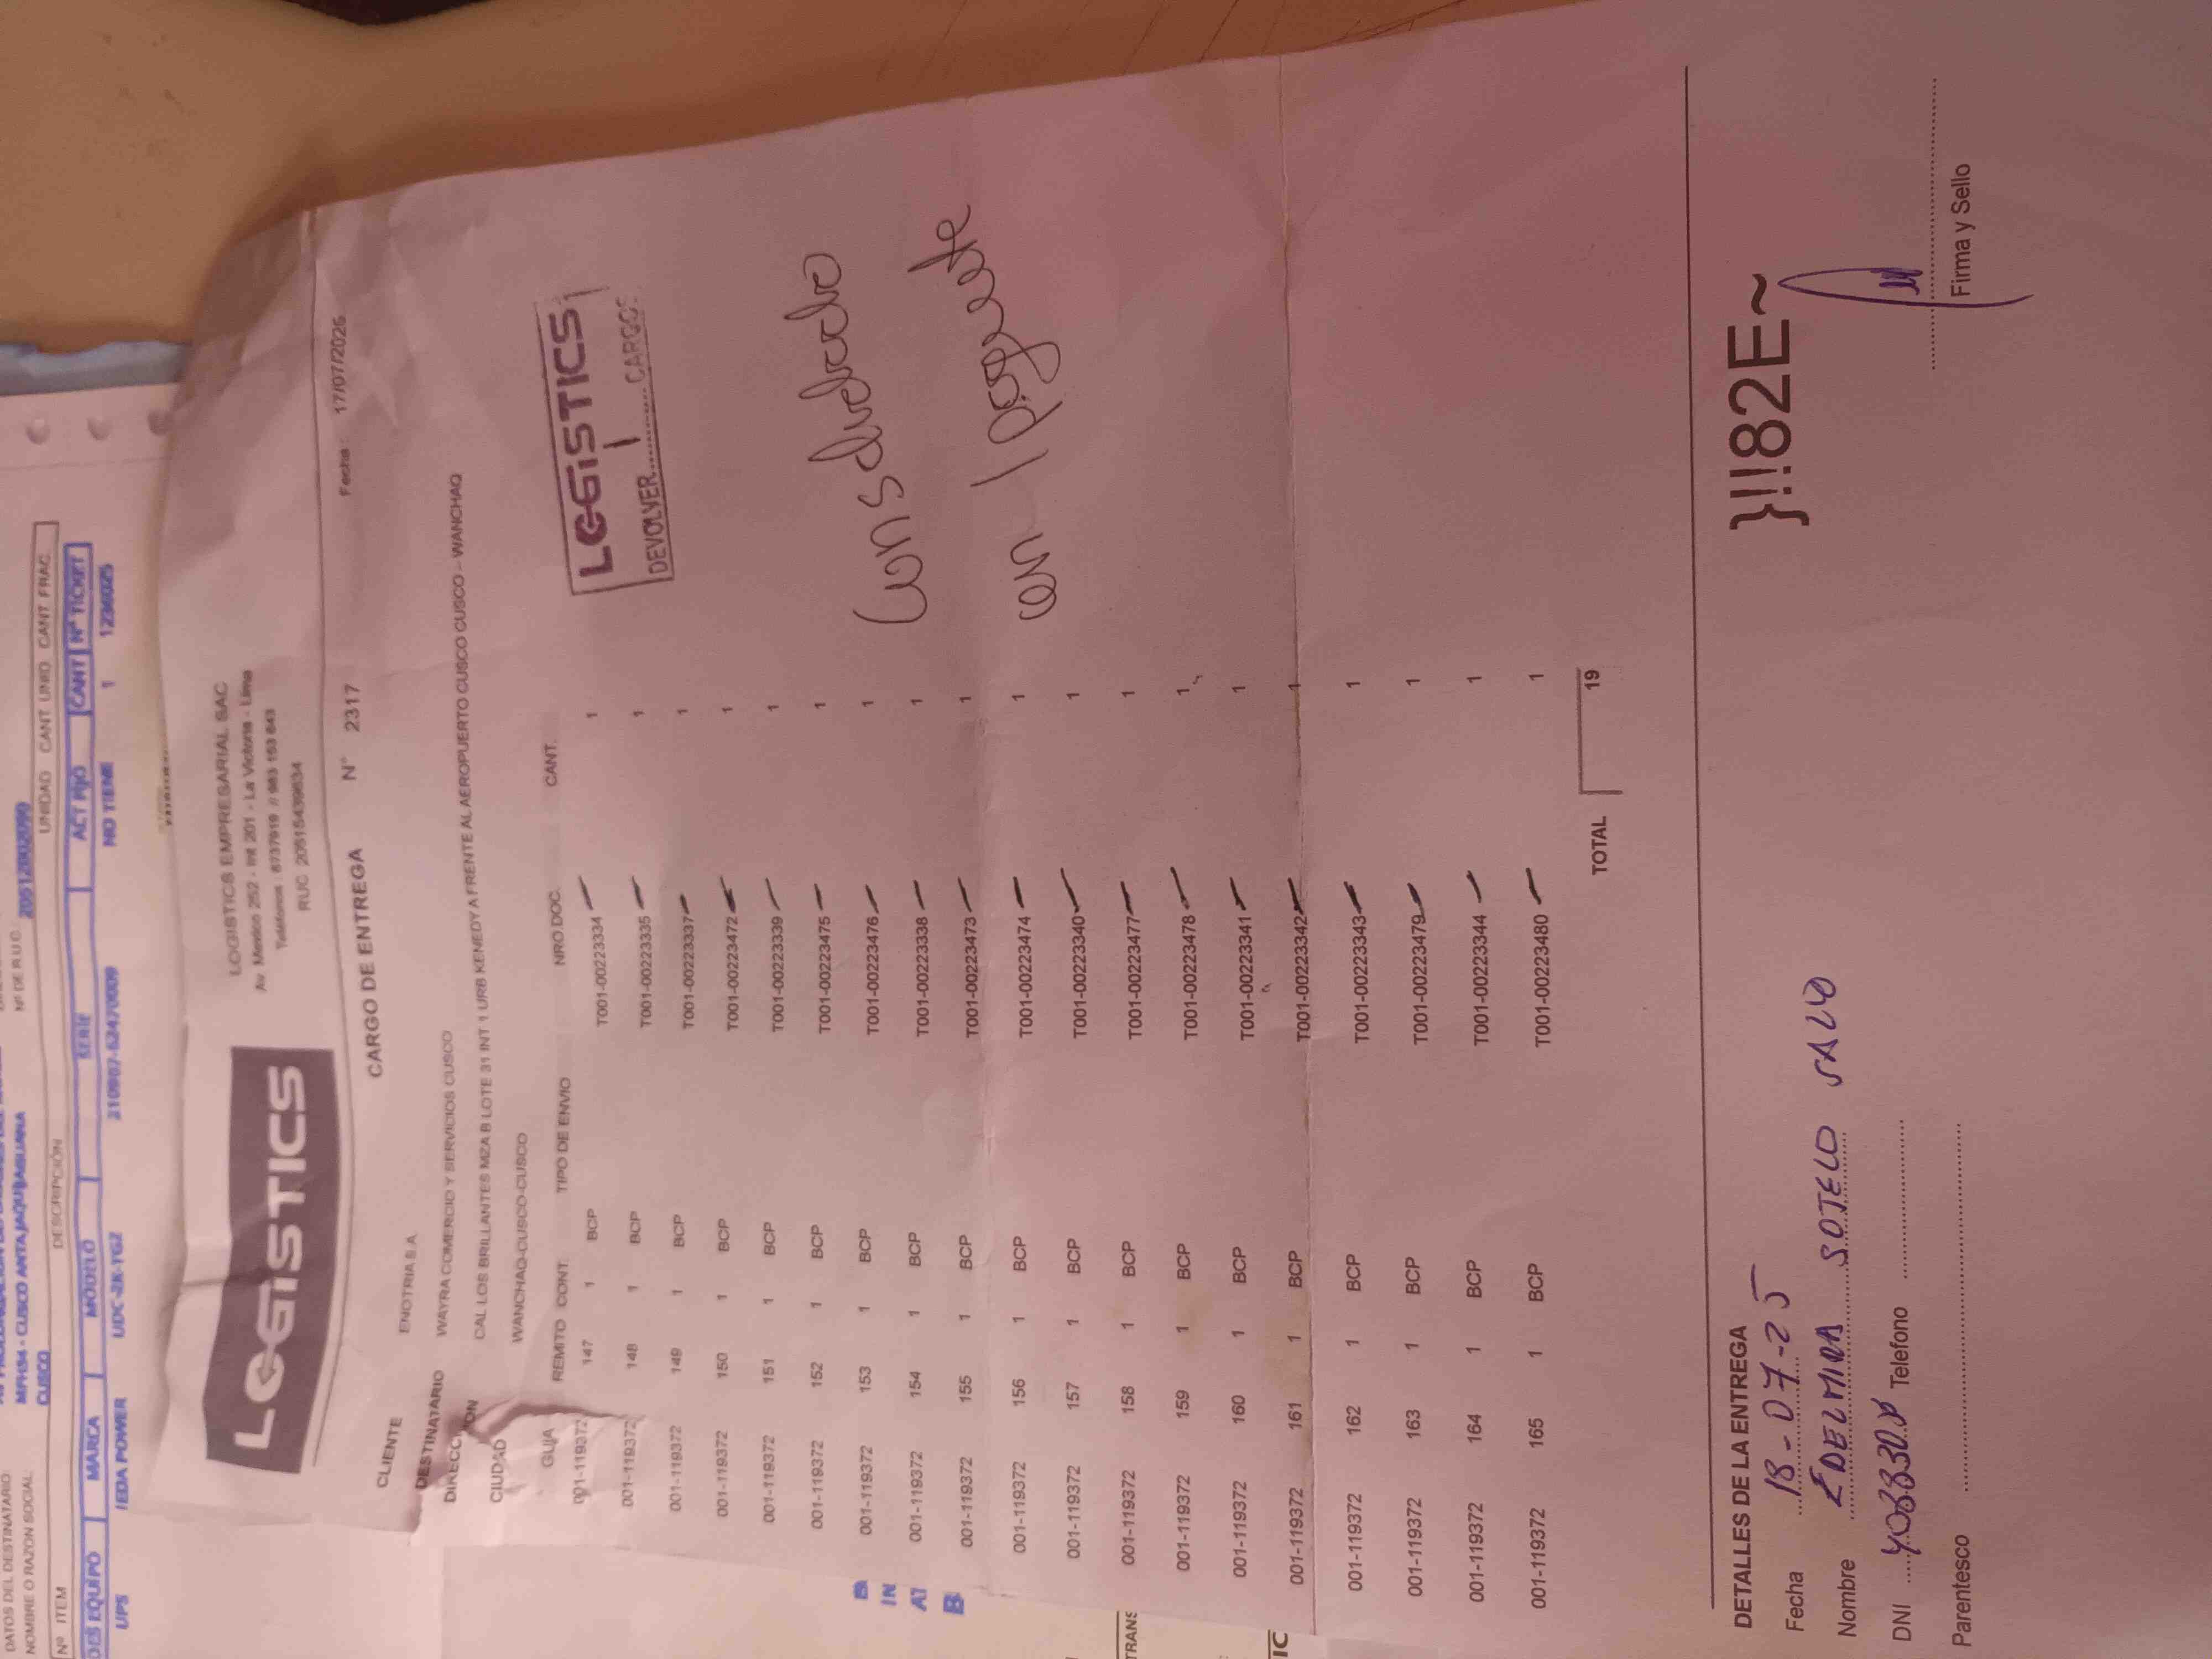 DATOS DEL DESTINATARIO:
NOMBRE O RAZON SOCIAL
MPHS4 - CUSCO ANTA JAQUIJAGUANA
CUSCO
Nº DE R.U.C.
Nº ITEM DESCRIPCIÓN UNIDAD CANT UNID CANT FRAC
DES EQUIPO MARCA MODELO SERIE ACT FIJO CANT Nº TICKET
UPS NO TIENE 1
LOGISTICS
LOGISTICS EMPRESARIAL SAC
Av. Mexico 252 - Int 201 - La Victoria - Lima
RUC 20515439834
CARGO DE ENTREGA N° 2317 Fecha: 17/07/2025
CLIENTE ENOTRIA S.A
DESTINATARIO WAYRA COMERCIO Y SERVICIOS CUSCO
DIRECCION CAL LOS BRILLANTES MZA B LOTE 31 INT 1 URB KENEDY A FRENTE AL AEROPUERTO CUSCO CUSCO - WANCHAQ
CIUDAD WANCHAQ-CUSCO-CUSCO
GUIA REMITO CONT. TIPO DE ENVIO NRO.DOC. CANT.
001-119372 147 1 BCP T001-00223334 1
001-119372 148 1 BCP T001-00223335 1
001-119372 149 1 BCP T001-00223337 1
001-119372 150 1 BCP T001-00223472 1
001-119372 151 1 BCP T001-00223339 1
001-119372 152 1 BCP T001-00223475 1
001-119372 153 1 BCP T001-00223476 1
001-119372 154 1 BCP T001-00223338 1
001-119372 155 1 BCP T001-00223473 1
001-119372 156 1 BCP T001-00223474 1
001-119372 157 1 BCP T001-00223340 1
001-119372 158 1 BCP T001-00223477 1
001-119372 159 1 BCP T001-00223478 1
001-119372 160 1 BCP T001-00223341 1
001-119372 161 1 BCP T001-00223342 1
001-119372 162 1 BCP T001-00223343 1
001-119372 163 1 BCP T001-00223479 1
001-119372 164 1 BCP T001-00223344 1
001-119372 165 1 BCP T001-00223480 1
TOTAL 19
LOGISTICS
DEVOLVER 1 CARGOS
en 1
DETALLES DE LA ENTREGA
Fecha 18-07-25
Nombre EDELMIRA SOTELO SALVO
DNI Telefono
Parentesco
}!!82E~
Firma y Sello